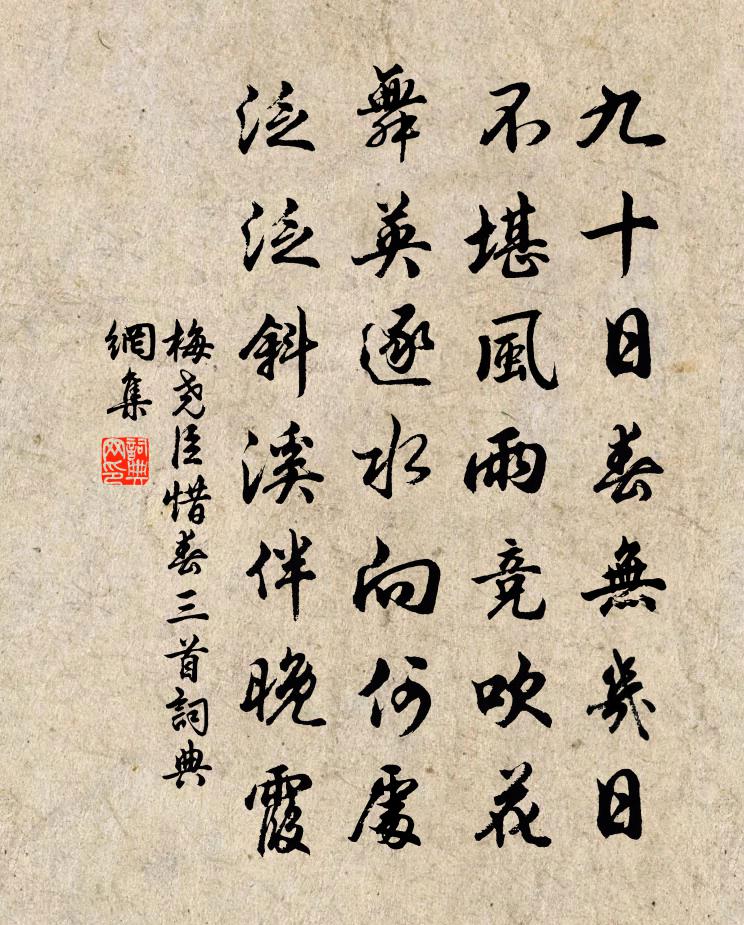 九十日春無幾日
不堪風雨竞吹花
舞英逐水向何處
泛泛斜溪伴晚霞
梅尧臣惜春三首詞典
網集
詞典
网印